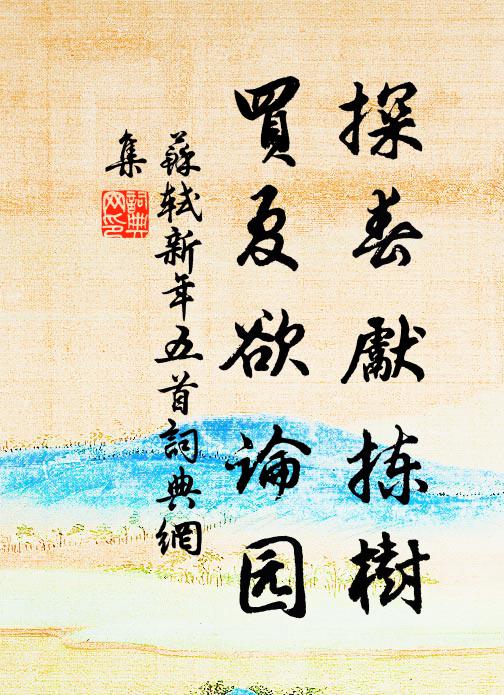 探春獻拣樹
買夏欲論园
蘇轼新年五首詞典網
集
詞典
网印